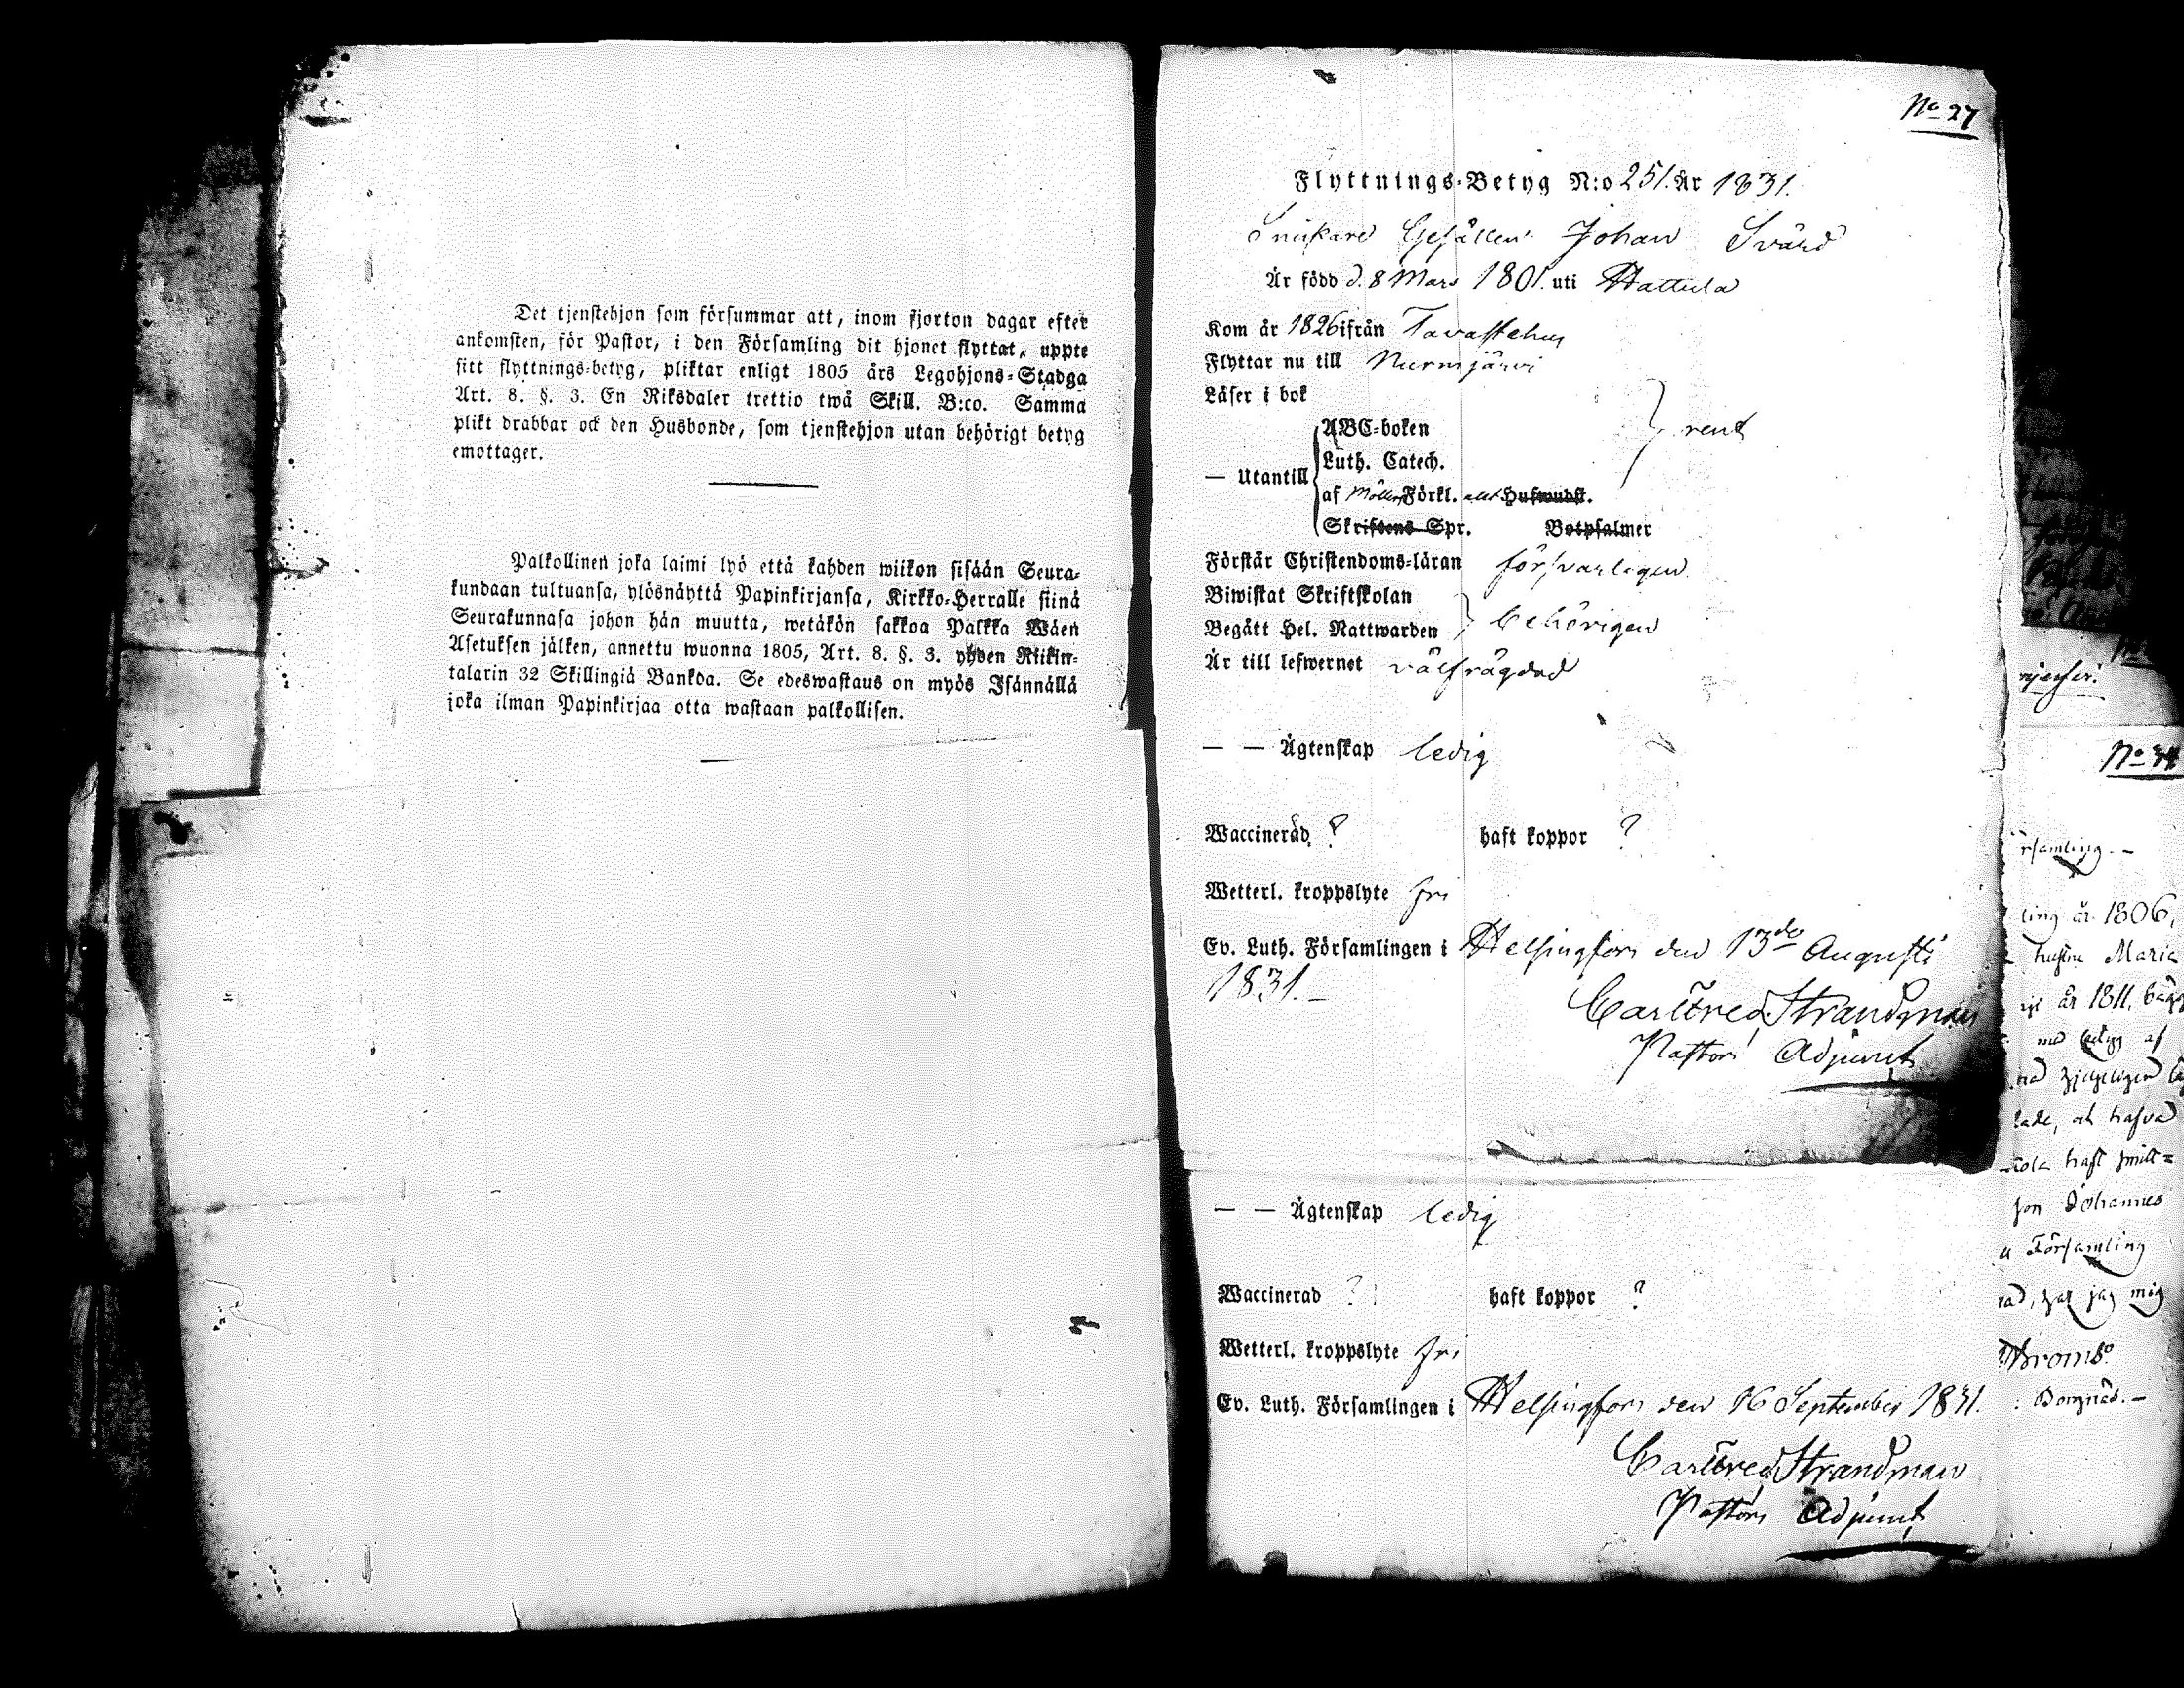 Det tjenstehjon som försummar att, inom fjorton dagar efter
ankomsten, för Pastor, i den Församling dit hjonet flyttat, uppte
sitt flyttnings-betyg, pliktar enligt 1805 års Legohjons-Stadga
Art. 8. §. 3. En Riksdaler trettio twå Skill. B:co. Samma
plikt drabbar ock den Husbonde, som tjenstehjon utan behörigt betyg
emottager.
Palkollinen joka laimi lyö että kahden wiikon sisään Seura-
kundaan tultuansa, ylösnäyttä Papinkirjansa, Kirkko-Herralle siinä
Seurakunnasa johon hän muutta, wetäkön sakkoa Palkka Wäen
Asetuksen jälken, annettu wuonna 1805, Art. 8. §. 3. yhden Riikin-
talarin 32 Skillingiä Bankoa. Se edeswastaus on myös Isännällä
joka ilman Papinkirjaa otta wastaan palkollisen.
No 27
Flyttnings-Betyg N:o 251. År 1831.
Snickare Gesällen Johan Svärd
Är född d. 8 Mars 1801. uti Hattula
Kom år 1826 ifrån Tavastehus
Flyttar nu till Nurmijärvi
Läser i bok
ABC-boken
rent
Luth. Catech.
— Utantill
af Möllers Förkl. Huswudst.
Skriftens Spr. Botpsalmer
Förstår Christendoms-läran försvarligen
Biwistat Skriftskolan
Begått Hel. Nattwarden behörigen
Är till lefwernet välfrägdad
— — Ägtenskap ledig
Waccinerad ? haft koppor ?
Wetterl. kroppslyte fri
Ev. Luth. Församlingen i Helsingfors den 13de Augusti
1831.—
Carl Fred Strandman
Pastors Adjunct
— — Ägtenskap ledig
Waccinerad ? haft koppor ?
Wetterl. kroppslyte fri
Ev. Luth. Församlingen i Helsingfors den 16 September 1831.
Carl Fred Strandman
Pastors Adjunct
rsamling.—
ling år 1806,
hustru Maria
år 1811,
med betyg af
son Johannes
Församling
jag mig